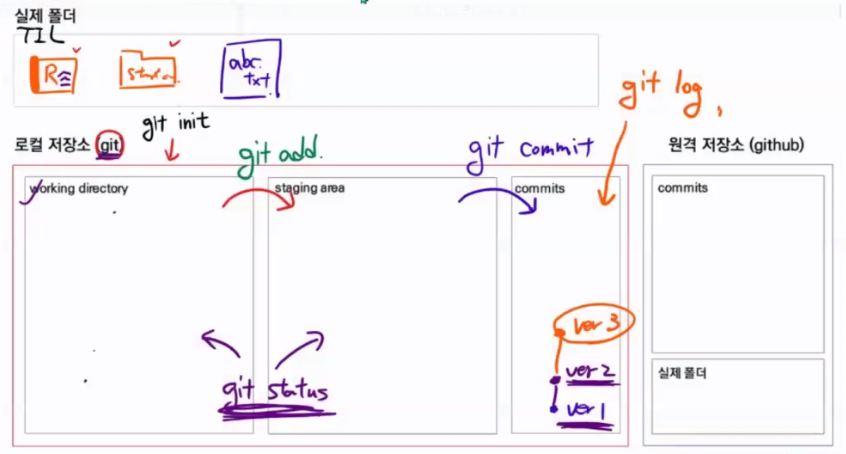 실제 폴더
TIL
R
abc.
txt
git log,
로컬 저장소 (git)
git init
git add.
git commit
원격 저장소 (github)
working directory
staging area
commits
commits
ver 3
ver 2
ver 1
git status
실제 폴더